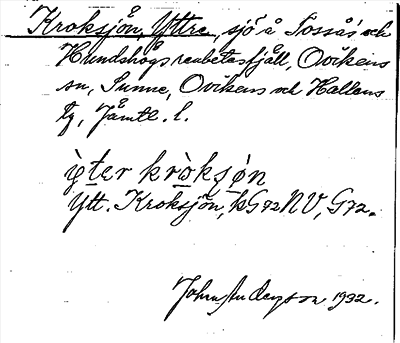 Kroksjön, Yttre, sjö å Sossås och
Hundshögs renbetesfjäll, Ovikens
sn, Sunne, Ovikens och Hallens
tg, Jämtl. l.
ỳter kròksjøn
Ytt. Kroksjön, kG 72 NV, G 72.
John Anderson 1932.